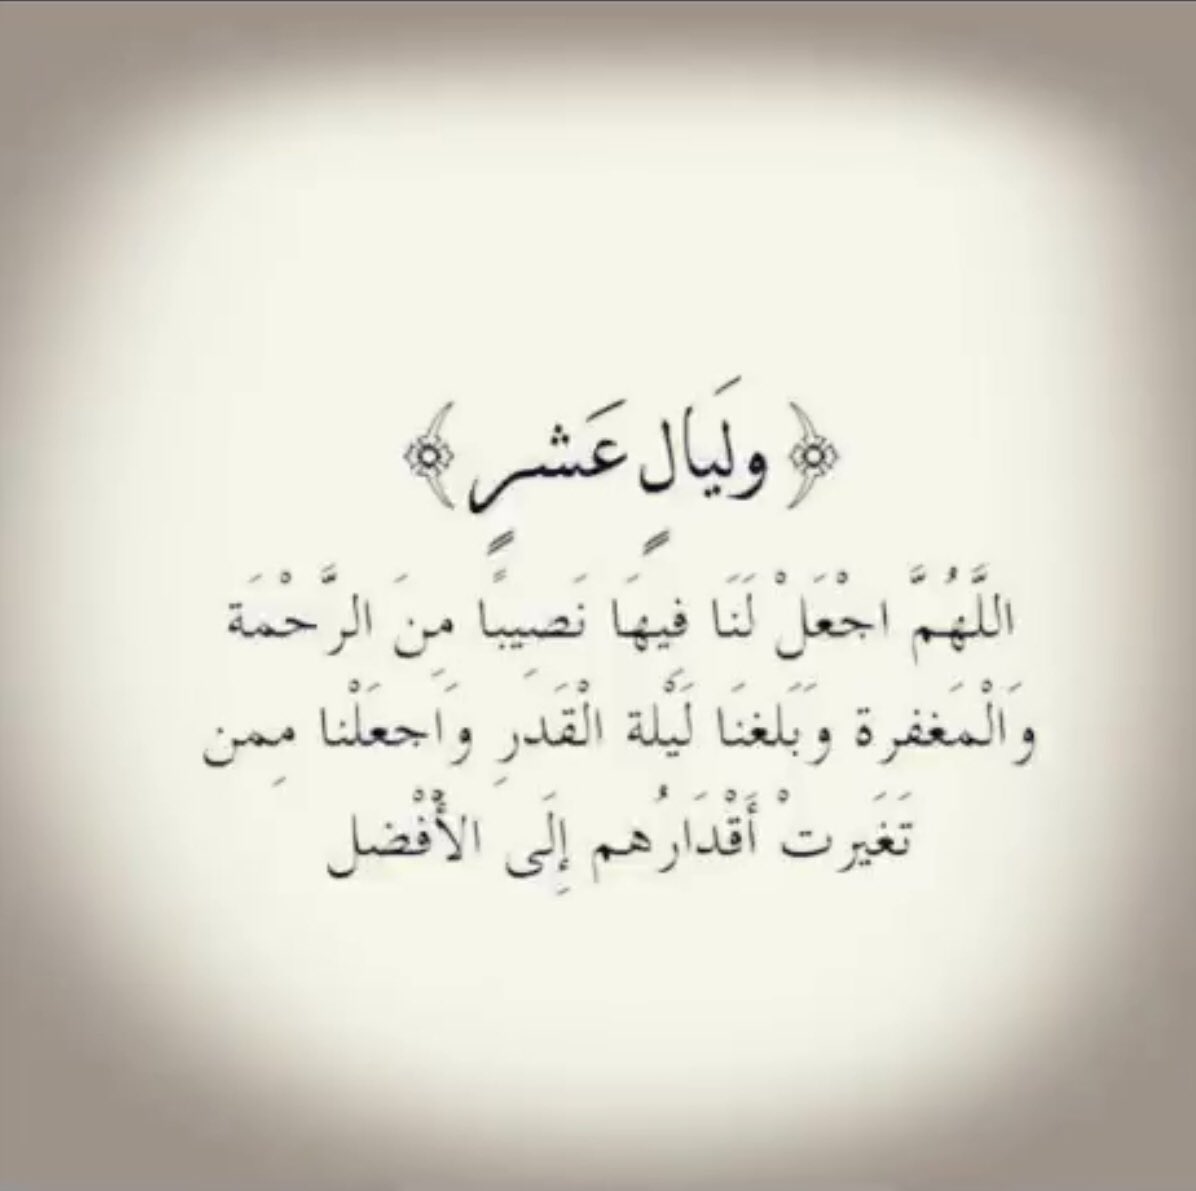 ﴿وَلَيَالٍ عَشْرٍ﴾
اللَّهُمَّ اجْعَلْ لَنَا فِيهَا نَصِيبًا مِنَ الرَّحْمَة
وَالْمَغفرة وَبَلغنَا لَيْلة الْقَدَرِ وَاجعَلْنا مِمن
تَغَيرتْ أَقْدَارُهم إِلَى الأَفْضل